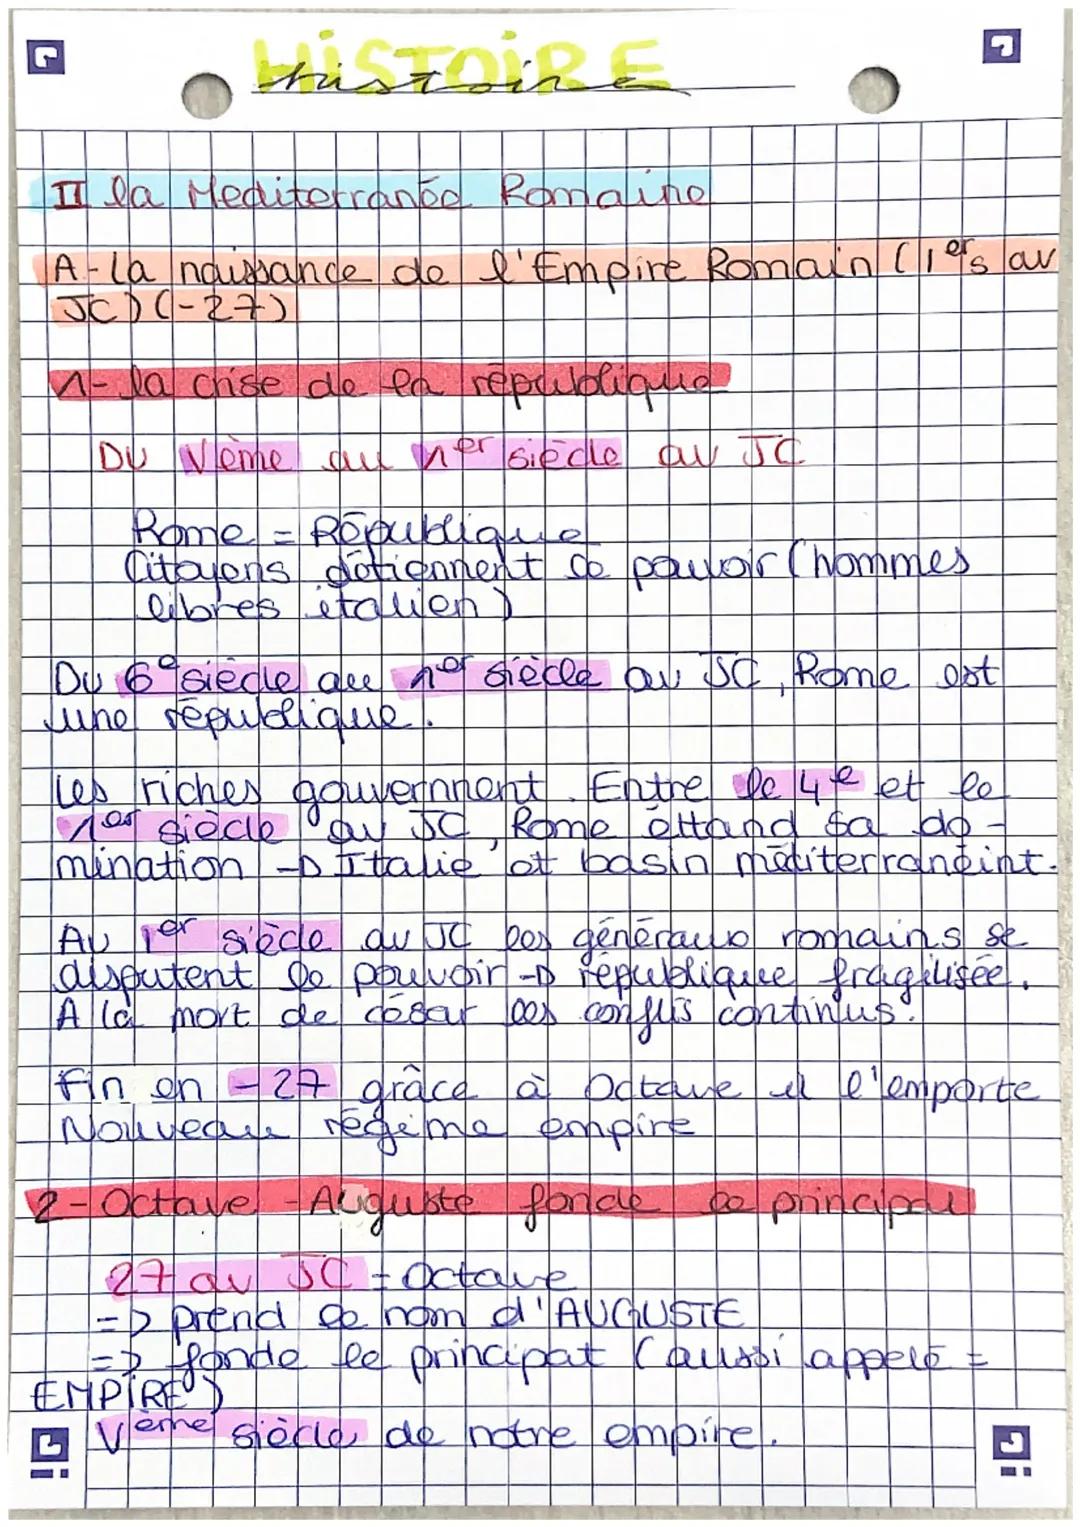 HISTOIRE
histoire
II la Mediterranée Romaine
A-La naissance de l'Empire Romain (1er s av
JC) (-27)
1- la crise de la république
Du Vème au 1er siècle av JC
Rome = République
Citoyens détiennent le pouvoir (hommes
libres italien)
Du 6e siècle au 1er siècle av JC, Rome est
une république.
Les riches gouvernnent. Entre le 4e et le
1er siècle av JC, Rome éttand sa do-
mination -> Italie et basin méditerranéint.
Au 1er siècle av JC les généraux romains se
disputent le pouvoir -> république fragilisée.
A la mort de césar les conflis continus.
Fin en -27 grâce à Octave il l'emporte
Nouveau régime empire
2-Octave-Auguste fonde le principau
27 av JC = Octave
=> prend le nom d'AUGUSTE
=> fonde le principat (aussi appelé =
EMPIRE)
Vème siècle de notre empire.